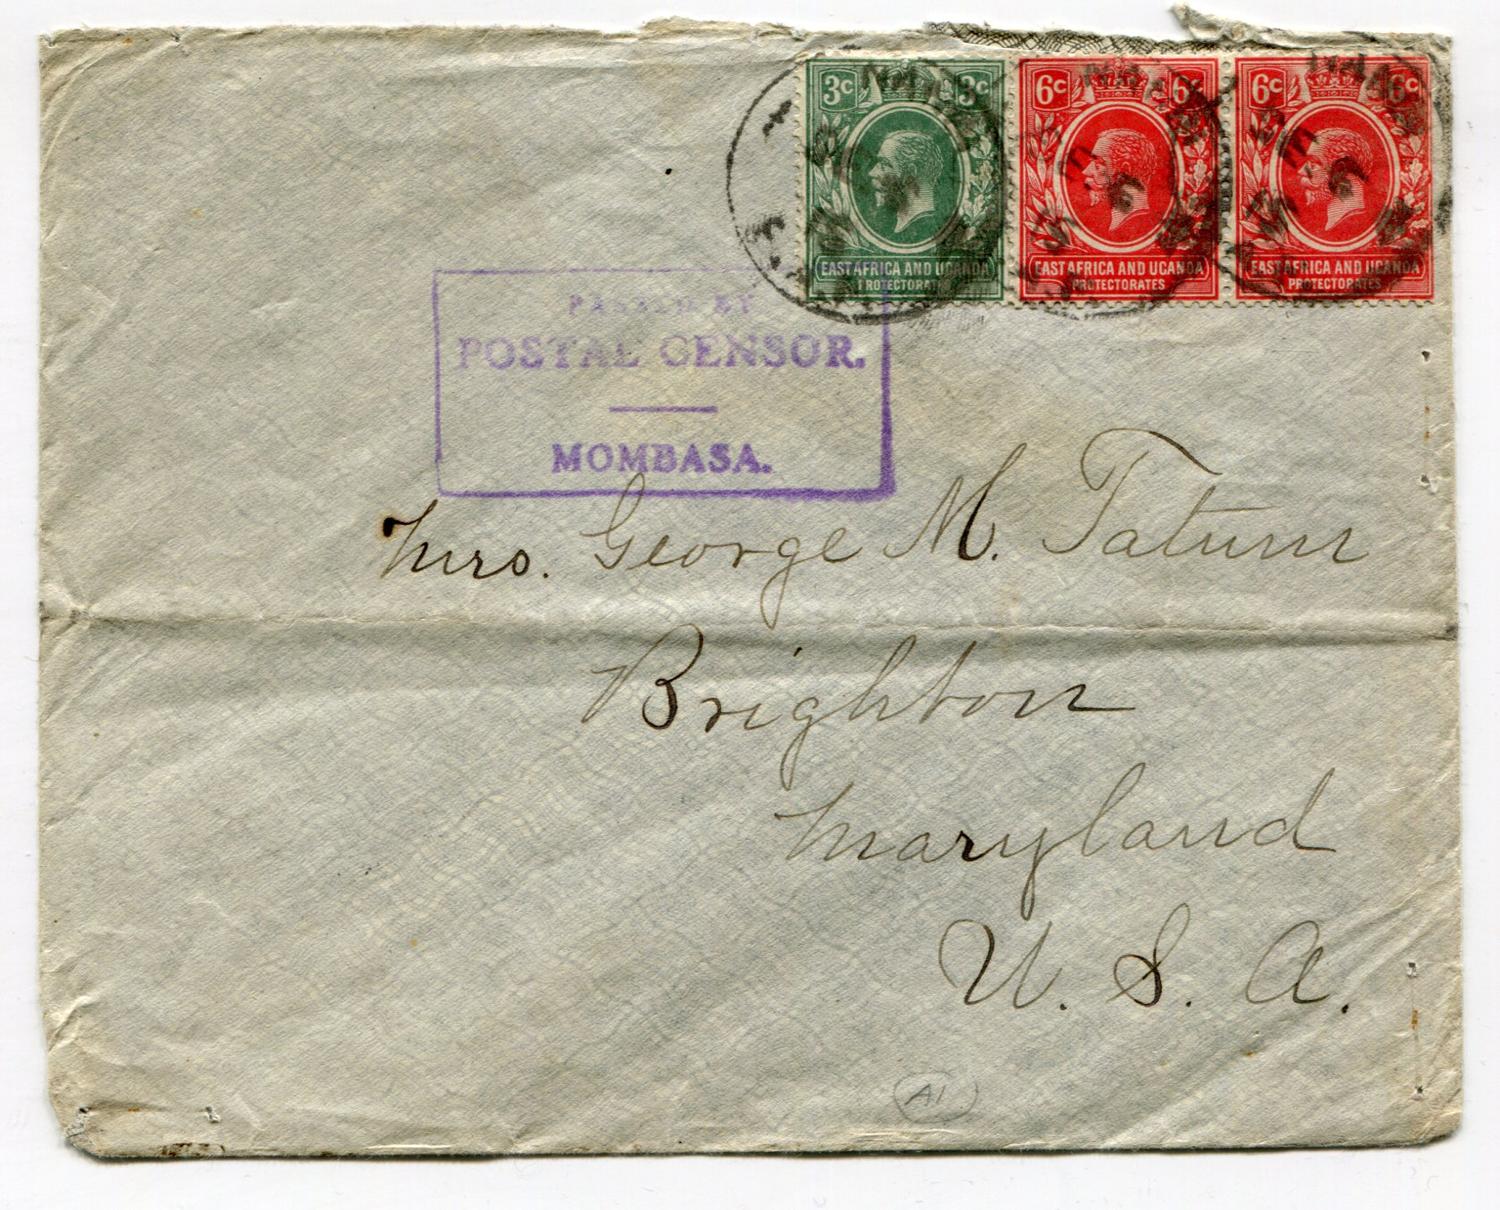 3c 3c 6c 6c 6c 6c
EAST AFRICA AND UGANDA EAST AFRICA AND UGANDA EAST AFRICA AND UGANDA
PROTECTORATES PROTECTORATES PROTECTORATES
PASSED BY
POSTAL CENSOR.
MOMBASA.
Mrs. George M. Tatum
Brighton
Maryland
U. S. A.
A1